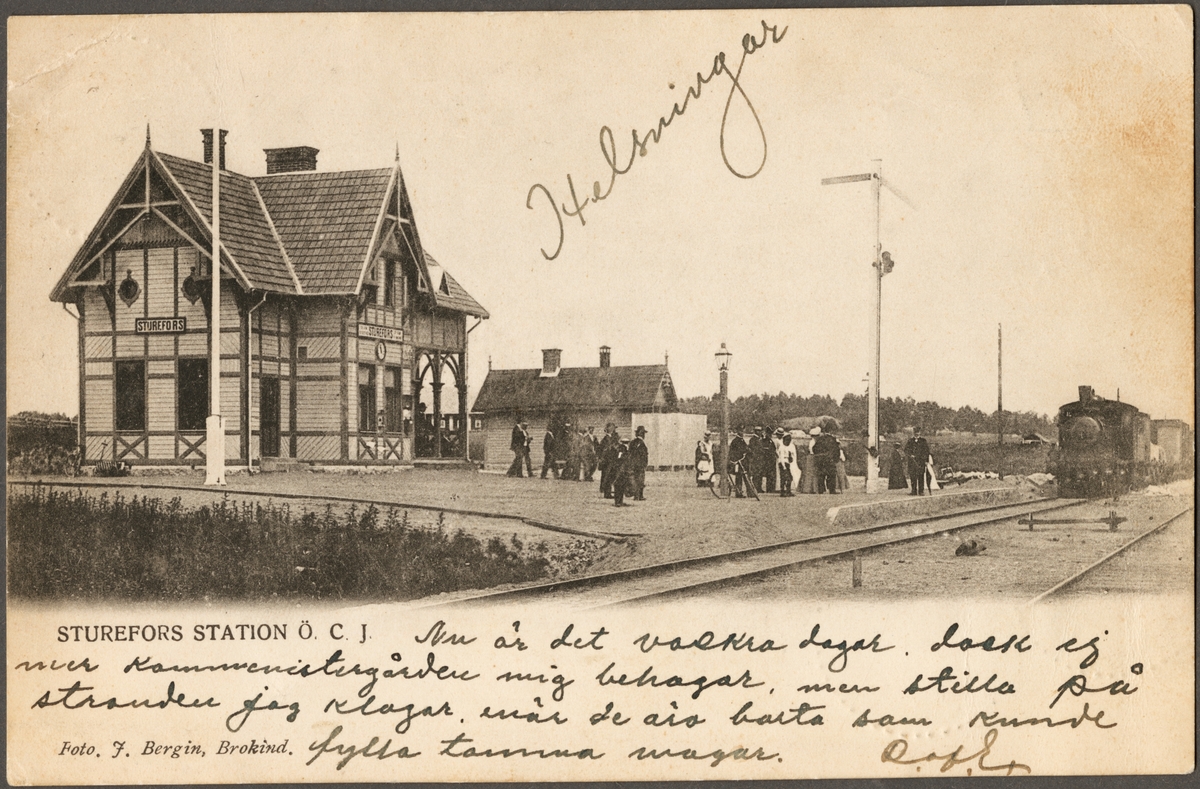 Helsningar
STUREFORS
STUREFORS
STUREFORS STATION Ö. C. J.
Nu är det vackra dagar, dock ej
mer kommenistergården mig behagar, men stilla på
stranden jag klagar, när de äro borta som kunde
fylla tomma magar.
Foto. J. Bergin, Brokind.